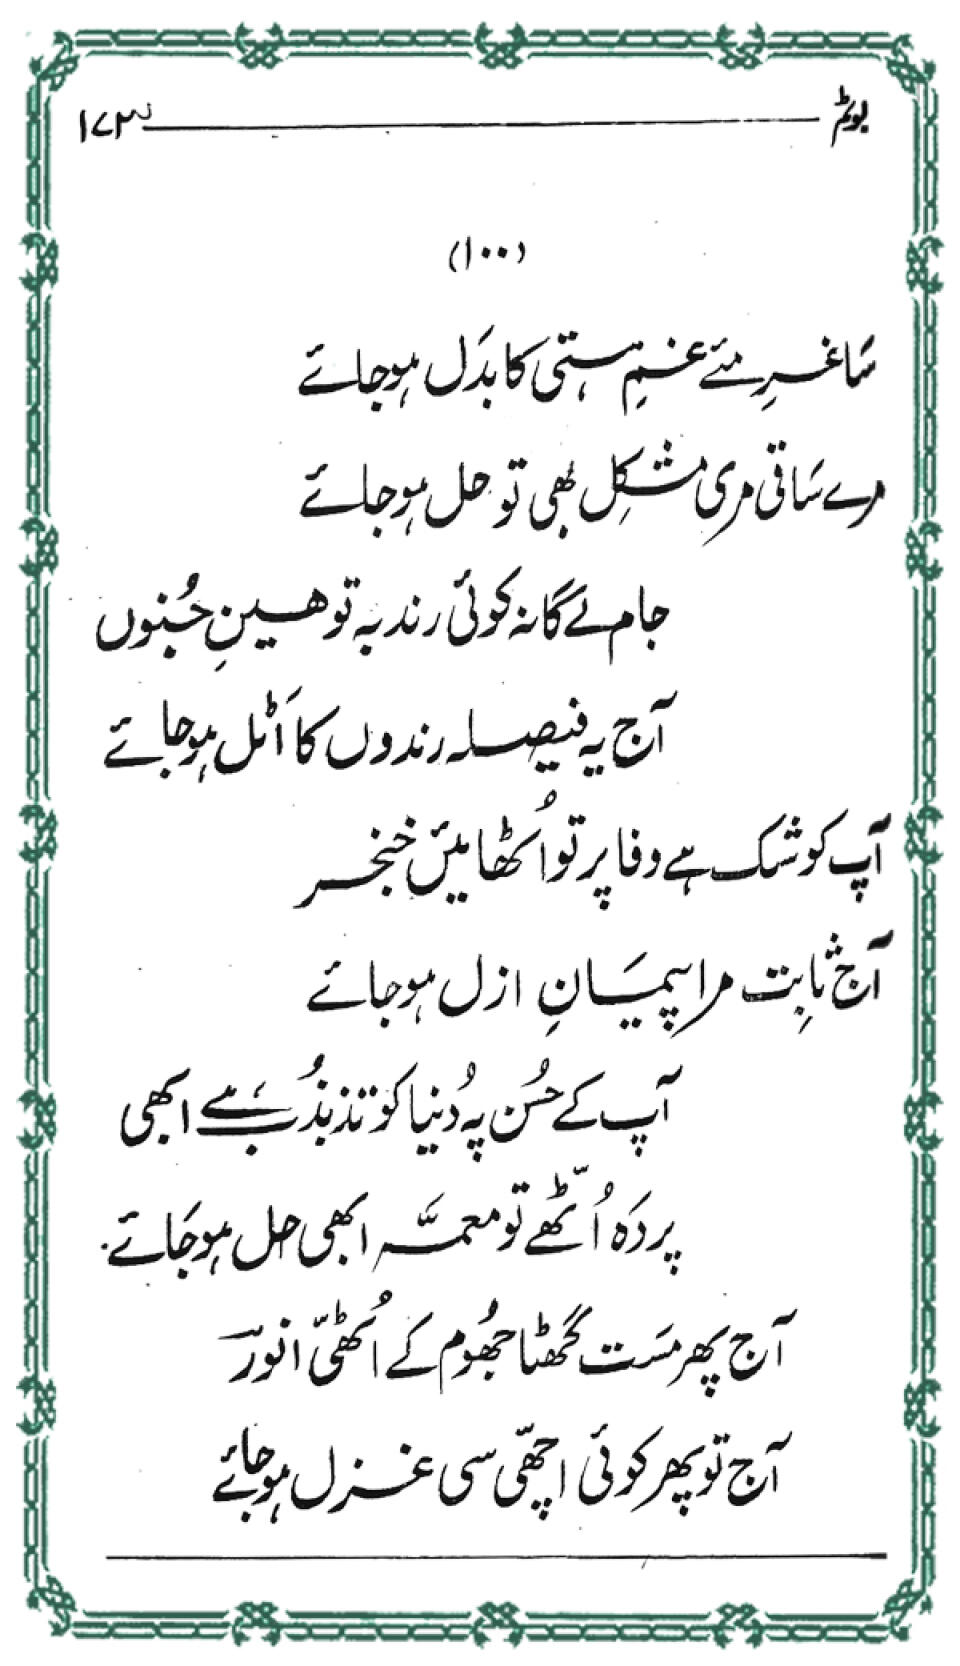 بوٹم ۱۷۳
(۱۰۰)
سَاغرِ مئے غمِ ہستی کا بدَل ہوجائے
مرے سَاقی مری مشکِل بھی تو حل ہوجائے
جام لے گا نہ کوئی رند بہ توھینِ جُنوں
آج یہ فیصلہ رندوں کا اَٹل ہوجائے
آپ کو شک ہے وفا پر تو اُٹھائیں خنجر
آج ثابِت مرا پیمَانِ ازل ہوجائے
آپ کے حُسن پہ دُنیا کو تذبذُب ہے ابھی
پردَہ اُٹھّے تو معمَّہ ابھی حل ہوجَائے
آج پھر مَست گھٹا جھُوم کے اُٹھّی انورؔ
آج تو پھر کوئی اچھّی سی غزل ہوجائے